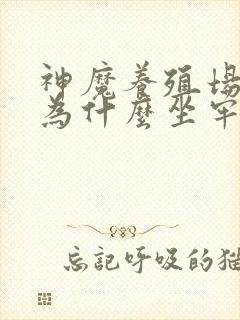 神魔養殖場
為什麼坐牢
忘記呼吸的猫